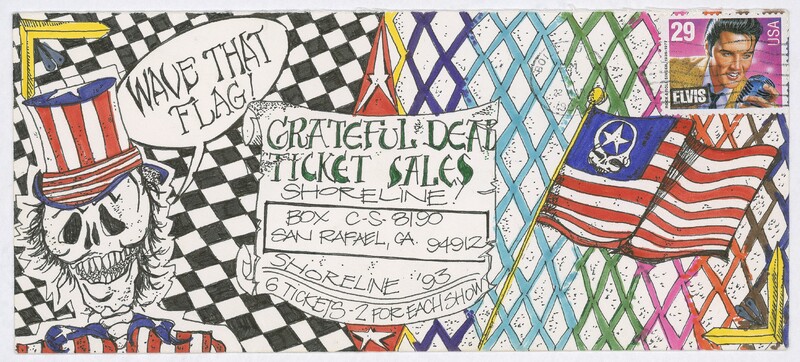 WAVE THAT
FLAG!
29
USA
ELVIS
GRATEFUL DEAD
TICKET SALES
SHORELINE!
BOX C-S-8190
SAN RAFAEL, CA. 94912
SHORELINE '93
6 TICKETS - 2 FOR EACH SHOW